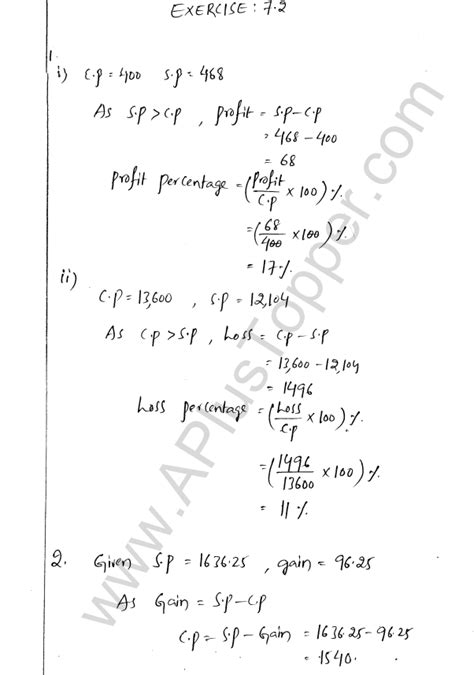 EXERCISE: 7.2
1.
i) C.p = 400 S.p = 468
As S.p > C.p , Profit = S.p – C.p
= 468 – 400
= 68
Profit Percentage = (Profit/C.p × 100) %
= (68/400 × 100) %
= 17 %
ii)
C.p = 13,600 , S.p = 12,104
As C.p > S.p , Loss = C.p – S.p
= 13,600 – 12,104
= 1496
Loss percentage = (Loss/C.p × 100) %
= (1496/13600 × 100) %
= 11 %
2. Given S.p = 1636.25 , gain = 96.25
As Gain = S.p – C.p
C.p = S.p – Gain = 1636.25 – 96.25
= 1540.
www.APlusTopper.com